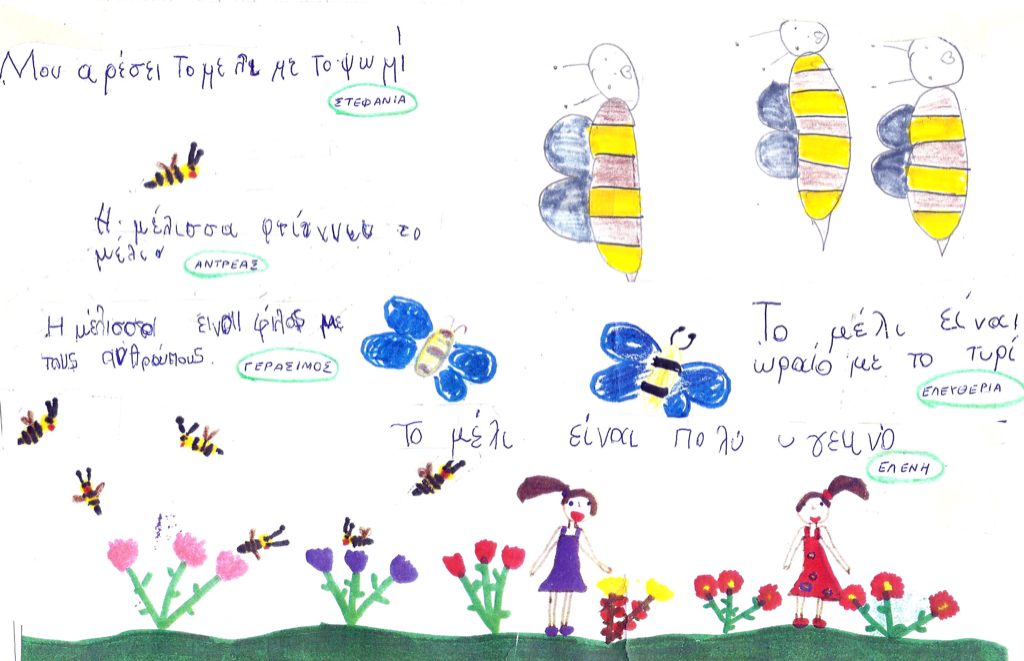 Μου αρέσει το μελι με το ψωμί
ΣΤΕΦΑΝΙΑ
Η μέλισσα φτίαννει το
μέλι
ΑΝΤΡΕΑΣ
Η μέλισσα είναι φίλος με
τους ανθρώπους.
ΓΕΡΑΣΙΜΟΣ
Το μέλι είναι
ωραίο με το τυρί
ΕΛΕΥΘΕΡΙΑ
Το μέλι είναι πολύ υγεινό
ΕΛΕΝΗ